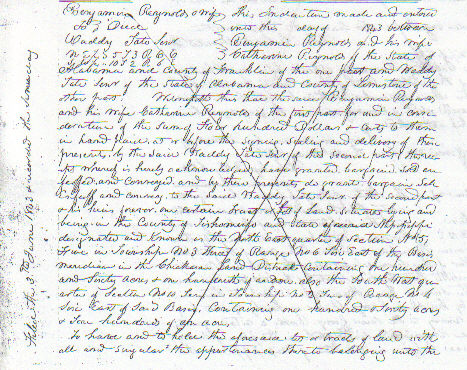 Benjamin Reynolds & wife This Indenture made and entered
To } Deed into this day of 1843 between
Waddy Tate Senr Benjamin Reynolds and his wife
Catherine Reynolds of the State of
Alabama and County of Franklin of the one part and Waddy
Tate Senr of the State of Alabama and County of Limestone of the
other part. Witnesseth that the said Benjamin Reynolds
and his wife Catherine Reynolds of the first part for and in consi
deration of the Sum of Hundred Dollars to them
in hand paid at or before the signing sealing and delivery of these
presents by the said Waddy Tate Senr of the Second part the rece
ipt whereof is hereby acknowledged have granted bargained Sold en
feoffed and Conveyed and by these presents do grant bargain Sell
enfeoff and convey to the said Waddy Tate Senr of the Second part
& his heirs forever one certain tract of land situate lying and
being in the County of Tishomingo and State of Mississippi
designated and known as the North East quarter of Section No 5
Five in Township No 3 Three of Range No 6 Six East of the Basis
meridian in the Chickasaw Land District Containing one hundred
and Sixty acres & one hundredth of an acre also the South East qu
arter of Section No 10 Ten in Township No 2 of Range No 6
Six East of Said Basis, Containing one hundred & Sixty acres
& Four hundredths of an acre.
To have and to hold the aforesaid tracts of land with
all and Singular the appurtenances thereto belonging unto the
Filed the 3rd June 1843 & recorded the same day